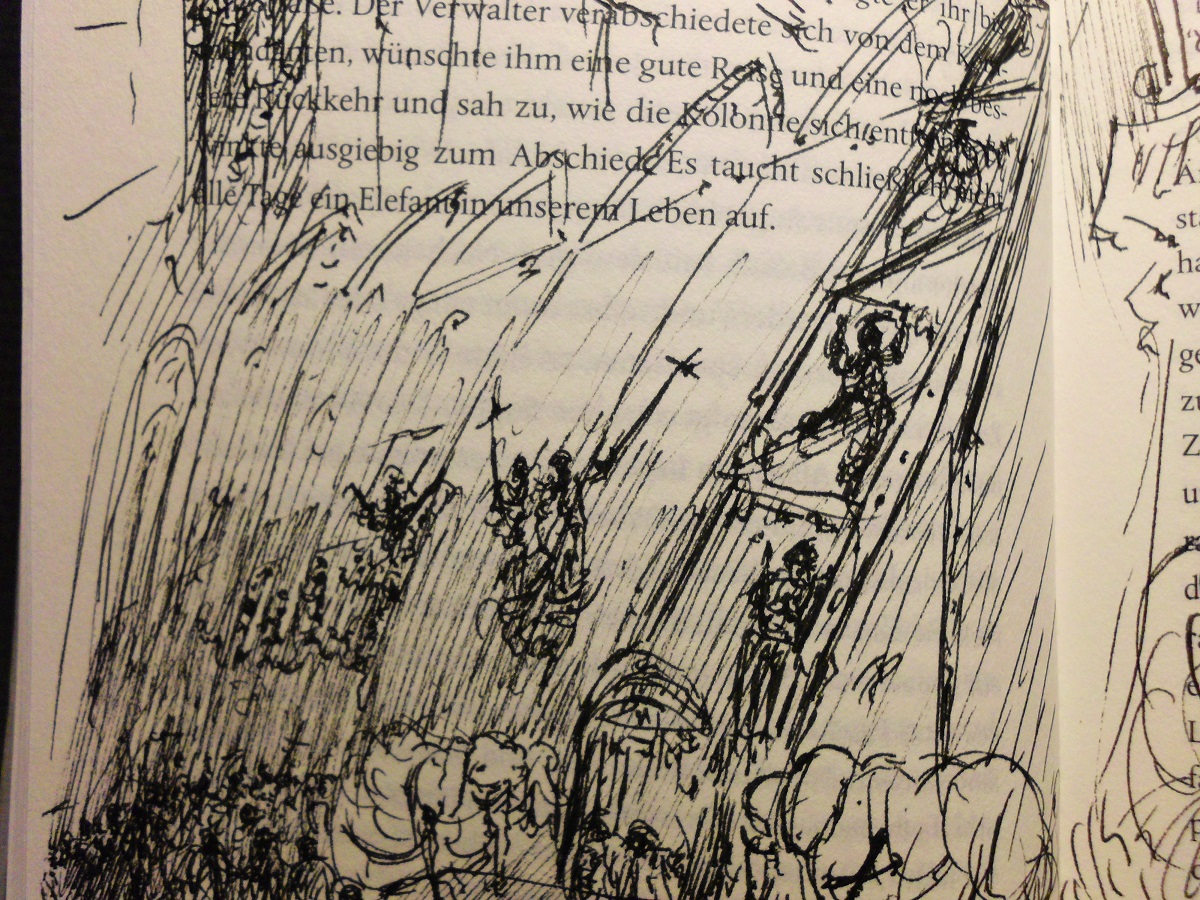 er ihr
Der Verwalter verabschiedete sich von dem
wünschte ihm eine gute Reise und eine noch bes-
sere Rückkehr und sah zu, wie die Kolonne sich
winkte ausgiebig zum Abschied. Es taucht schließlich nicht
alle Tage ein Elefant in unserem Leben auf.